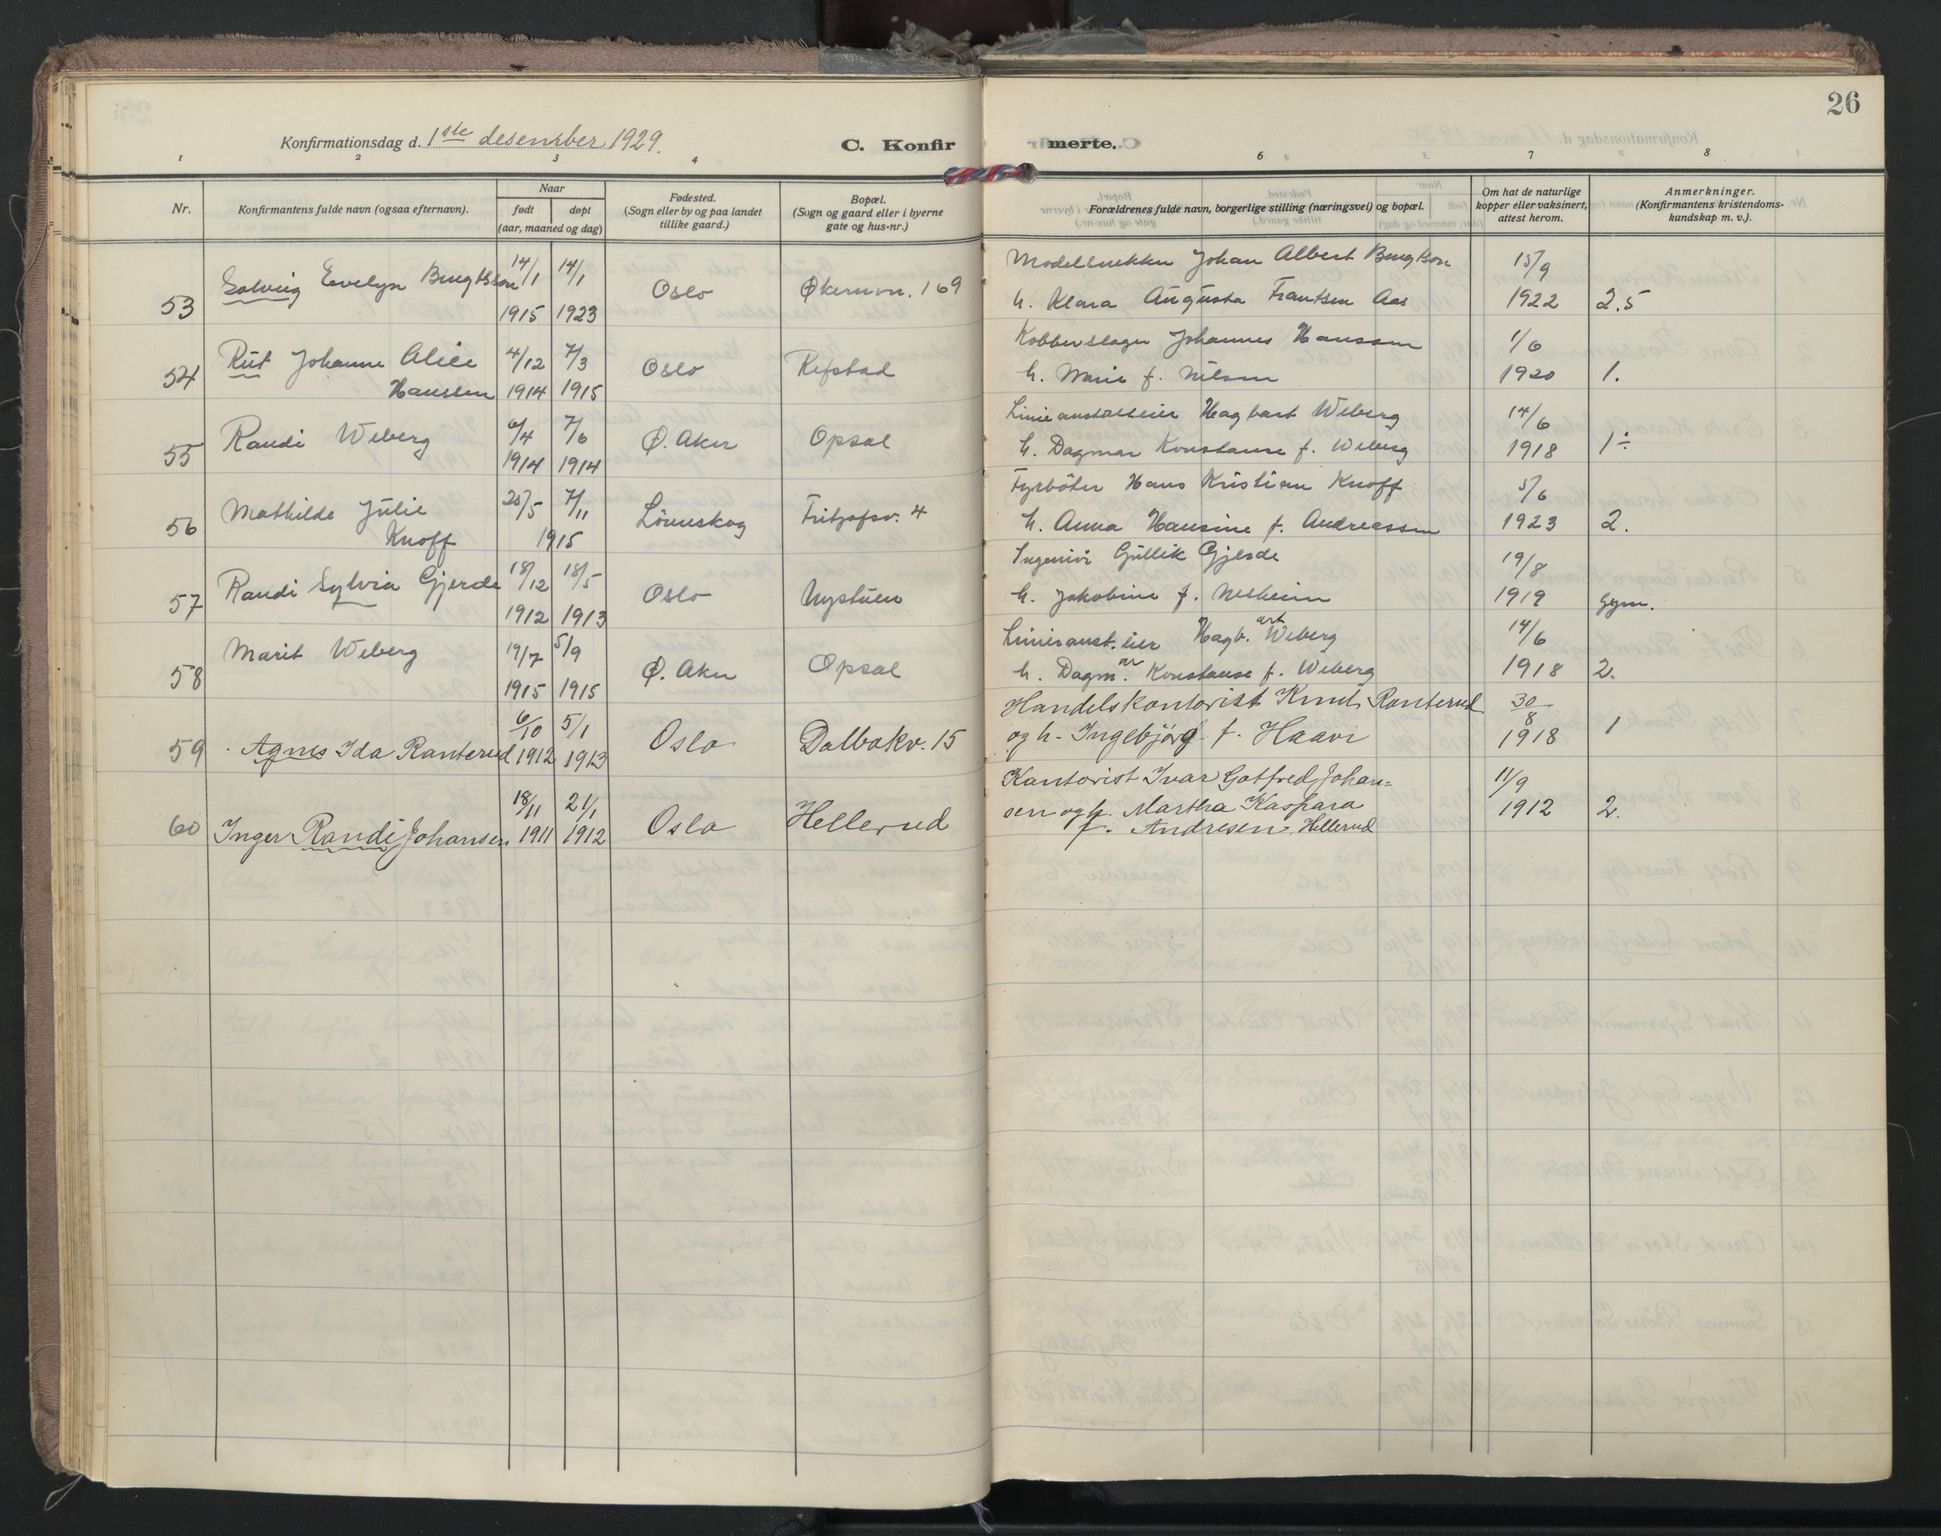 26
Konfirmationsdag d. 1ste desember 1929. C. Konfir merte.
1 2 3 4 6 7 8
Nr.
Konfirmantens fulde navn (ogsaa efternavn).
Naar
født døpt
(aar, maaned og dag)
Fødested.
(Sogn eller by og paa landet
tillike gaard.)
Bopæl.
(Sogn og gaard eller i byerne
gate og hus-nr.)
Forældrenes fulde navn, borgerlige stilling (næringsvei) og bopæl.
Om hat de naturlige
kopper eller vaksinert,
attest herom.
Anmerkninger.
(Konfirmantens kristendoms-
kundskap m. v.).
14/1 14/1 Modelsnekker Johan Albert Bengtson 15/9
53 Solveig Evelyn Bengtson 1915 1923 Oslo Økernvn. 169 h. Klara Augusta Frantsen Aas 1922 2.5
Rut Johanne Alice 4/12 7/3 Kobberslager Johannes Hanssen 1/6
54 Hanssen 1914 1915 Oslo Refstad h. Marie f. Nilsen 1920 1.
6/4 7/6 Linieanstalteier Hagbart Weberg 14/6
55 Randi Weberg 1914 1914 Ø. Aker Opsal h. Dagmar Konstanse f. Weberg 1918 1÷
Mathilde Julie 20/5 7/11 Fyrbøter Hans Kristian Knoff 5/6
56 Knoff 1915 Lörenskog Fritjofsv. 4 h. Anna Hansine f. Andreassen 1923 2.
18/12 18/5 Ingeniör Gullik Gjerde 19/8
57 Randi Sylvia Gjerde 1912 1913 Oslo Nystuen h. Jakobine f. Nesheim 1919 Gym.
19/7 5/9 Linieranst. eier Hagb.art Weberg 14/6
58 Marit Weberg 1915 1915 Ø. Aker Opsal h. Dagm.ar Konstanse f. Weberg 1918 2.
6/10 5/1 Handelskontorist Knut Ranterud 30/8
59 Agnes Ida Ranterud 1912 1913 Oslo Dalbakv. 15 og h. Ingebjörg f. Haavi 1918 1
18/11 21/1 Kontorist Ivar Gotfred Johan= 11/9
60 Inger Randi Johansen 1911 1912 Oslo Hellerud sen og h. Martha Kaspara 1912 2.
f. Andresen, Hellerud